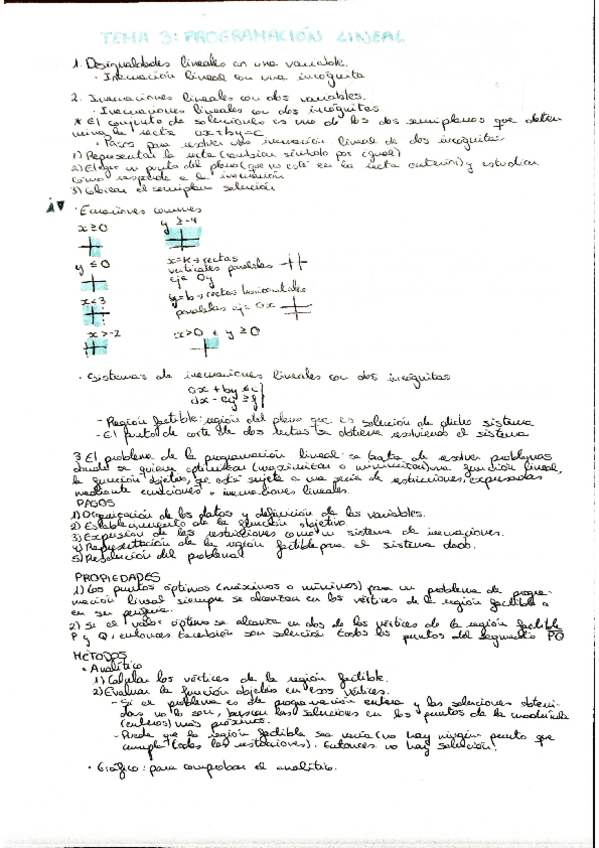 TEMA 3: PROGRAMACIÓN LINEAL
1. Desigualdades lineales con una variable.
· Inecuación lineal con una incógnita
2. Inecuaciones lineales con dos variables.
· Inecuaciones lineales con dos incógnitas
* El conjunto de soluciones es uno de los dos semiplanos que deter
mina la recta ax+by=c
· Pasos para resolver una inecuación lineal de dos incógnitas
1) Representar la recta (cambian símbolo por igual)
2) Elegir un punto del plano (que no esté en la recta anterior) y estudiar
como responde a la inecuación
3) Colorean el semiplano solución
· Ecuaciones comunes
x≥0 y≥-4
y≤0 x=k→rectas
verticales paralelas
eje Oy
x<3 y=b→rectas horizontales
paralelas eje Ox
x>-2 x>0 e y≥0
· Sistemas de inecuaciones lineales con dos incógnitas
ax+by≤c
dx-ey≥f
- Región factible: región del plano que es solución de dicho sistema
- El punto de corte de dos rectas se obtiene resolviendo el sistema
3 El problema de la programación lineal: se trata de resolver problemas
donde se quiere optimizar (maximizar o minimizar) una función lineal,
la función objetivo, que está sujeta a una serie de restricciones, expresadas
mediante ecuaciones o inecuaciones lineales.
PASOS
1) Organización de los datos y definición de las variables.
2) Establecimiento de la función objetivo.
3) Expresión de las restricciones como un sistema de inecuaciones.
4) Representación de la región factible para el sistema dado.
5) Resolución del problema
PROPIEDADES
1) Los puntos óptimos (máximos o mínimos) para un problema de progra-
mación lineal siempre se alcanzan en los vértices de la región factible o
en su
2) Si el valor óptimo se alcanza en dos de los vértices de la región factible
P y Q, entonces también son solución todos los puntos del segmento PQ
MÉTODOS
· Analítico
1) Calcular los vértices de la región factible.
2) Evaluar la función objetivo en esos vértices.
- Si el problema es de programación entera y las soluciones obteni-
das no lo son, buscan las soluciones en los puntos de la cuadrícula
(enteros) más próximos.
- Puede que la región factible sea vacía (no hay ningún punto que
cumpla todas las restricciones). Entonces no hay solución.
· Gráfico: para comprobar el analítico.